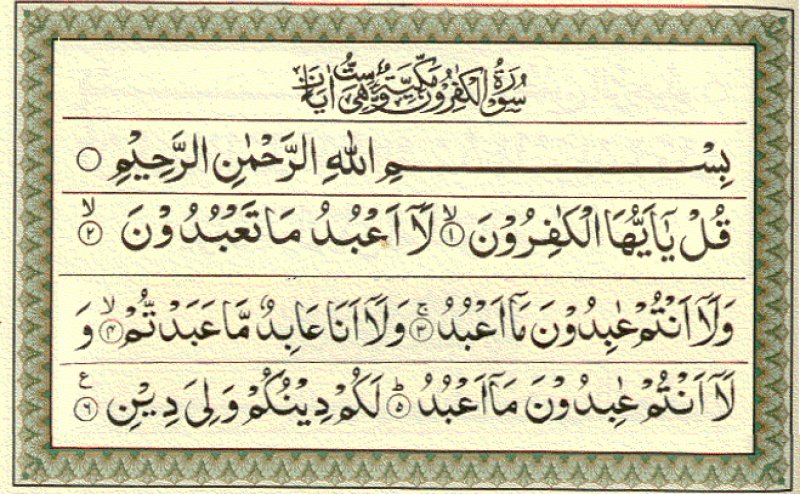 سُوْرَةُ الْكٰفِرُوْنَ مَكِّيَّةٌ وَّهِيَ سِتُّ اٰيَاتٍ
بِسْمِ اللّٰهِ الرَّحْمٰنِ الرَّحِيْمِ ○
قُلْ يٰۤاَيُّهَا الْكٰفِرُوْنَ ۙ﴿۱﴾ لَاۤ اَعْبُدُ مَا تَعْبُدُوْنَ ۙ﴿۲﴾
وَلَاۤ اَنْتُمْ عٰبِدُوْنَ مَاۤ اَعْبُدُ ۚ﴿۳﴾ وَلَاۤ اَنَا عَابِدٌ مَّا عَبَدْتُّمْ ۙ﴿۴﴾ وَ
لَاۤ اَنْتُمْ عٰبِدُوْنَ مَاۤ اَعْبُدُ ؕ﴿۵﴾ لَكُمْ دِيْنُكُمْ وَلِيَ دِيْنِ ﴿۶﴾ ع